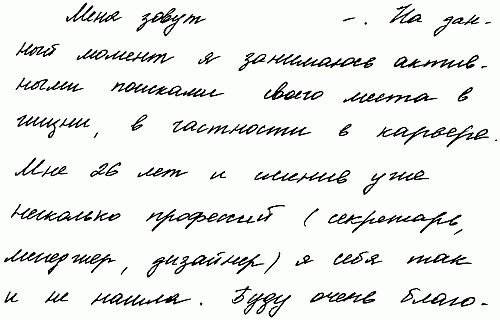 Меня зовут —. На дан-
ный момент я занимаюсь актив-
ными поисками своего места в
жизни, в частности в карьере.
Мне 26 лет и сменив уже
несколько профессий (секретарь,
менеджер, дизайнер) я себя так
и не нашла. Буду очень благо-